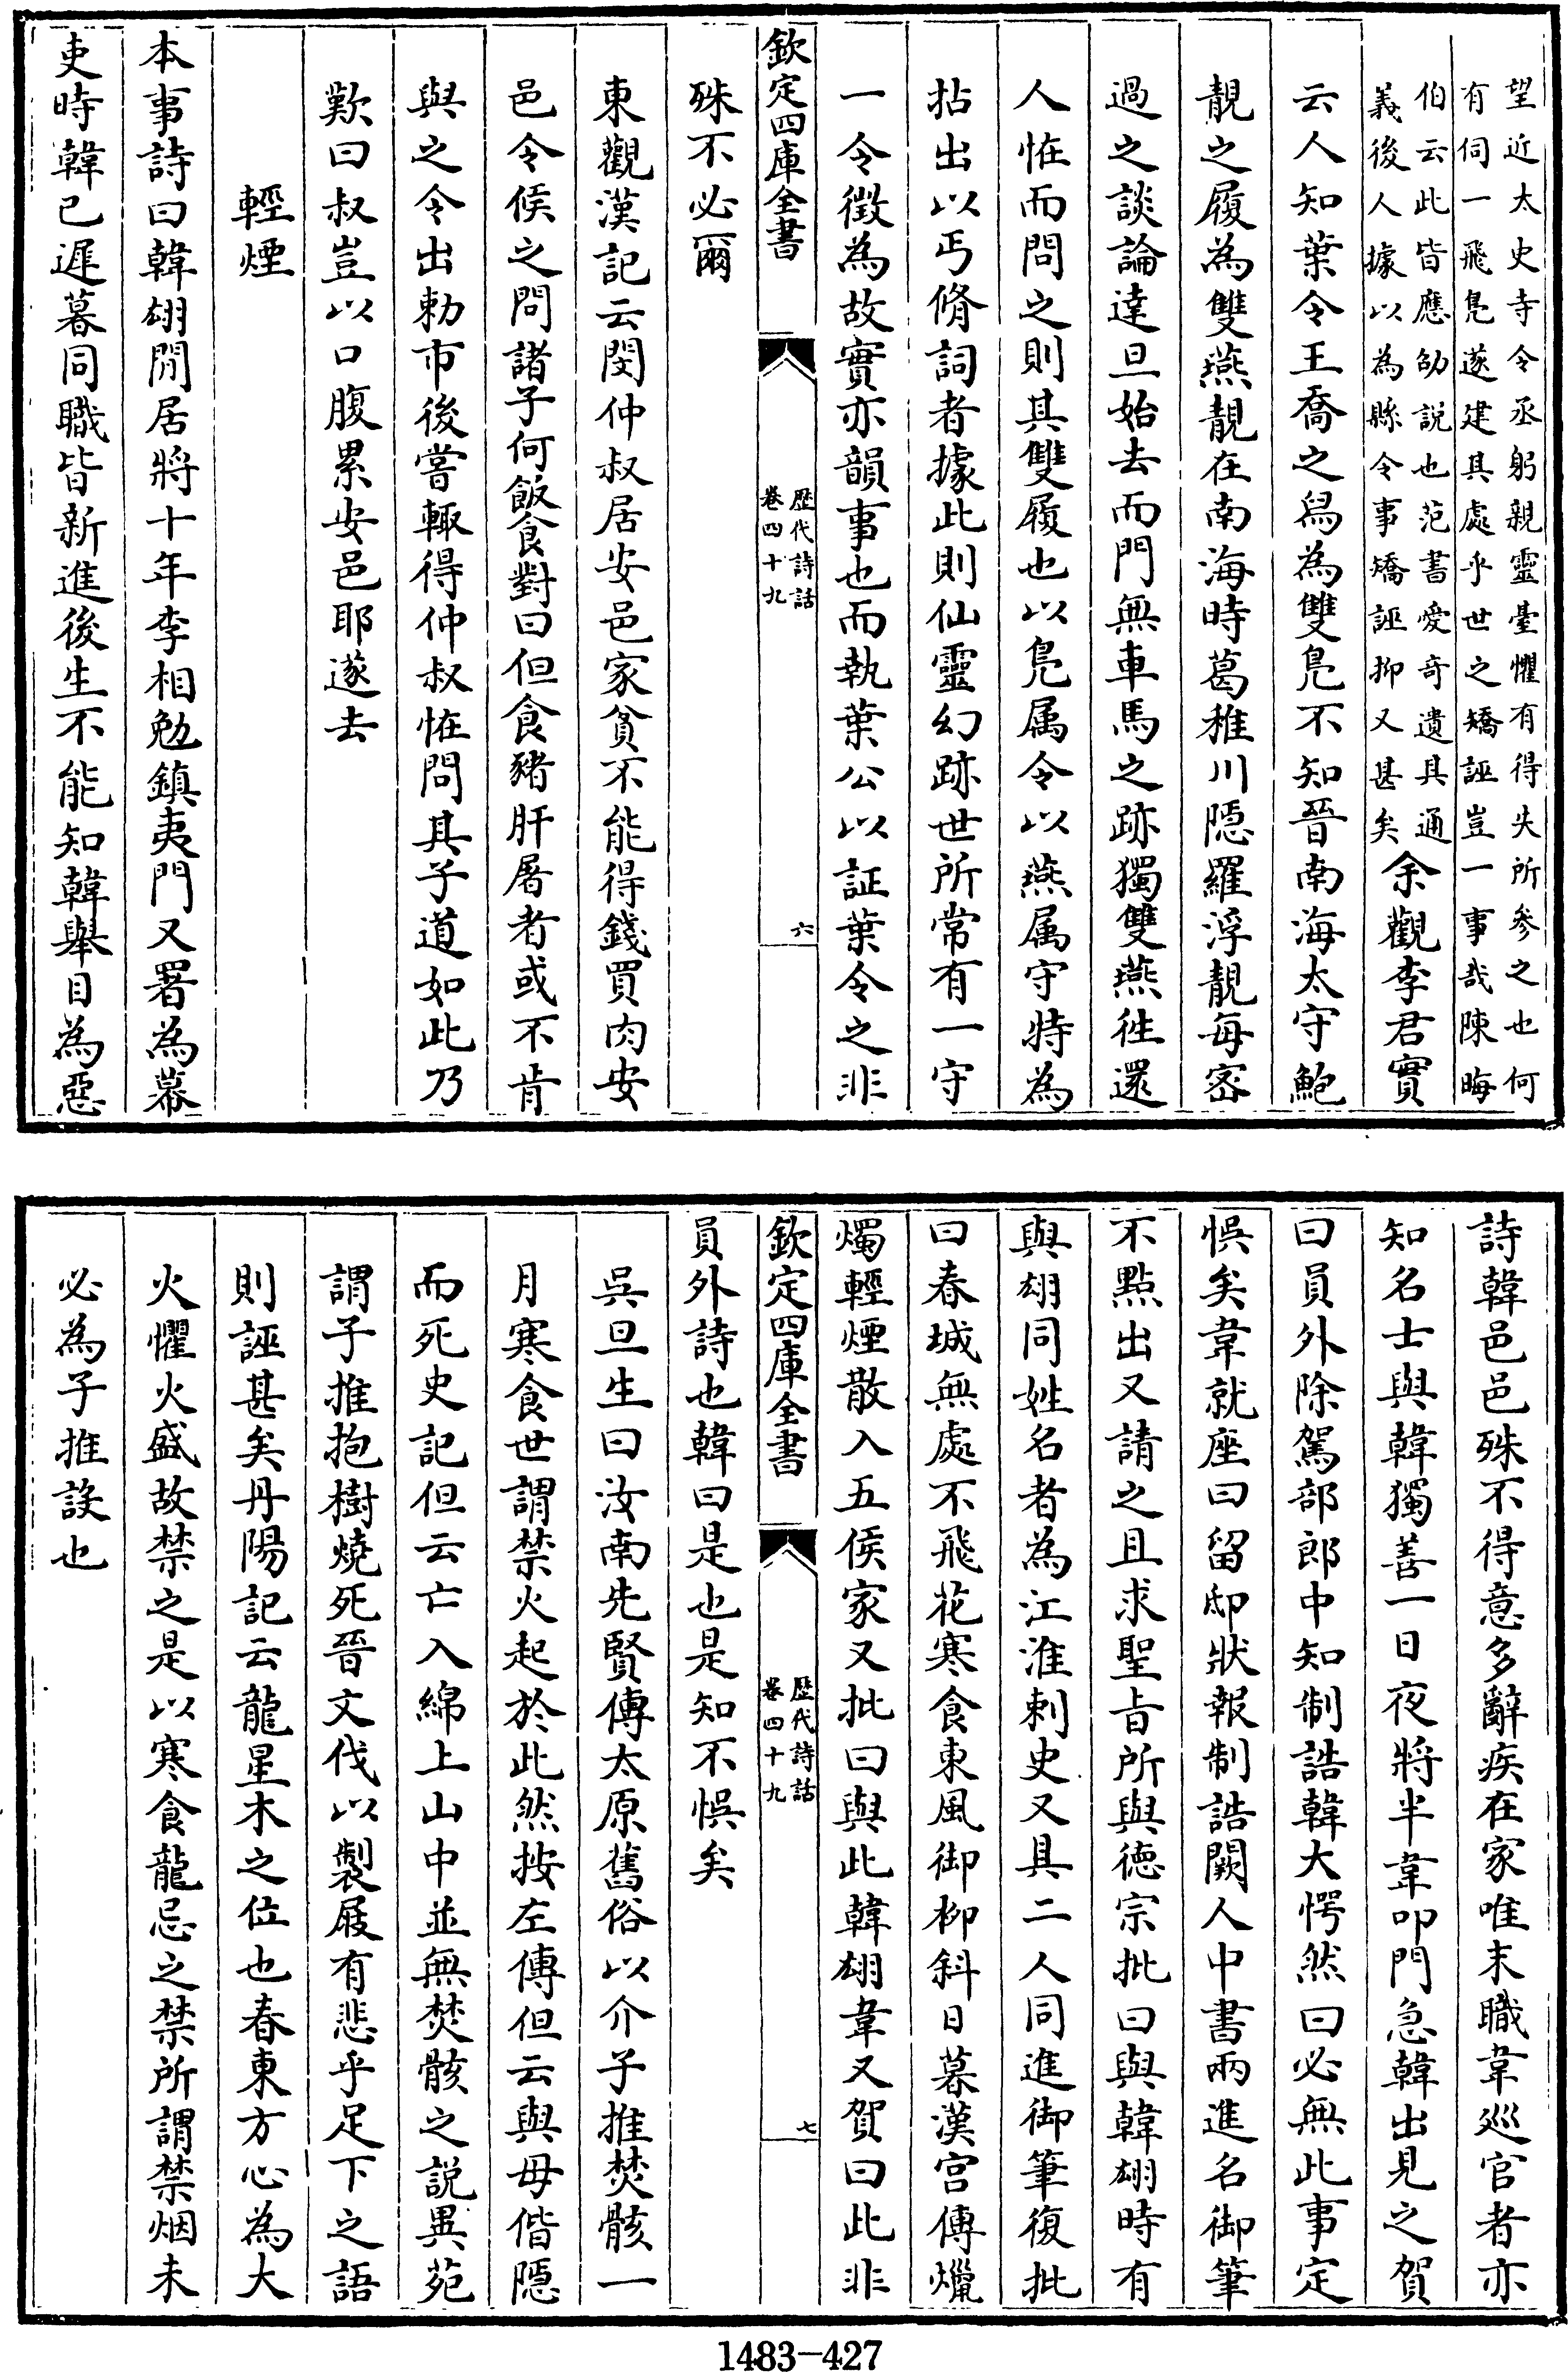 望近太史寺令丞躬親靈臺懼有得失所參之也何
有伺一飛鳬遂建其處乎世之矯誣豈一事哉陳晦
伯云此皆應劭説也范書愛奇遺具通
義後人據以為縣令事矯誣抑又甚矣余觀李君實
云人知葉令王喬之舄為雙鳬不知晉南海太守鮑
靚之履為雙燕靚在南海時葛稚川隠羅浮靚每宻
過之談論達旦始去而門無車馬之跡獨雙燕徃還
人恠而問之則其雙履也以鳬属令以燕属守特為
拈出以丐脩詞者據此則仙靈幻跡世所常有一守
一令徴為故實亦韻事也而執葉公以証葉令之非
欽定四庫全書
歴代詩話
卷四十九
六
殊不必爾
東觀漢記云閔仲叔居安邑家貧不能得錢買肉安
邑令候之問諸子何飯食對曰但食豬肝屠者或不肯
與之令出勅市後嘗輙得仲叔恠問其子道如此乃
歎曰叔豈以口腹累安邑耶遂去
輕煙
本事詩曰韓翃閒居將十年李相勉鎮夷門又署為幕
吏時韓已遲暮同職皆新進後生不能知韓舉目為惡
詩韓邑邑殊不得意多辭疾在家唯末職韋廵官者亦
知名士與韓獨善一日夜將半韋叩門急韓出見之賀
曰員外除駕部郎中知制誥韓大愕然曰必無此事定
悞矣韋就座曰留邸狀報制誥闕人中書兩進名御筆
不點出又請之且求聖旨所與徳宗批曰與韓翃時有
與翃同姓名者為江淮刺史又具二人同進御筆復批
曰春城無處不飛花寒食東風御柳斜日暮漢宫傳爉
燭輕煙散入五侯家又批曰與此韓翃韋又賀曰此非
欽定四庫全書
歴代詩話
卷四十九
七
員外詩也韓曰是也是知不悞矣
吳旦生曰汝南先賢傳太原舊俗以介子推焚骸一
月寒食世謂禁火起於此然按左傳但云與母偕隠
而死史記但云亡入綿上山中並無焚骸之説異苑
謂子推抱樹燒死晉文伐以製屐有悲乎足下之語
則誣甚矣丹陽記云龍星木之位也春東方心為大
火懼火盛故禁之是以寒食龍忌之禁所謂禁烟未
必為子推設也
1483-427